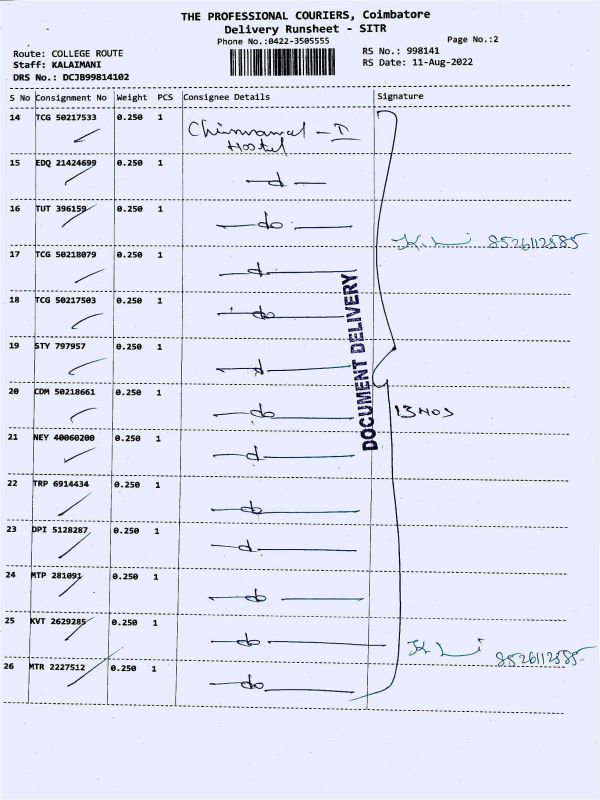 THE PROFESSIONAL COURIERS, Coimbatore
Delivery Runsheet - SITR
Phone No.:0422-3505555
Page No.:2
Route: COLLEGE ROUTE
RS No.: 998141
Staff: KALAIMANI
RS Date: 11-Aug-2022
DRS No.: DCJB99814102
S No Consignment No Weight PCS Consignee Details Signature
14 TCG 50217533 0.250 1
Hostel
15 EDQ 21424699 0.250 1 do
16 TUT 396159 0.250 1 do
8526112585
17 TCG 50218079 0.250 1 do
18 TCG 50217503 0.250 1 do
DOCUMENT DELIVERY
19 STY 797957 0.250 1 do
20 CDM 50218661 0.250 1 do
13 NOS
21 NEY 40060200 0.250 1 do
22 TRP 6914434 0.250 1 do
23 DPI 5128287 0.250 1 do
24 MTP 281091 0.250 1 do
25 KVT 2629285 0.250 1 do
8526112585
26 MTR 2227512 0.250 1 do